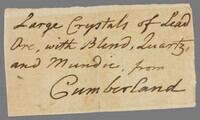 Large Crystals of Lead
Ore, with Blend, Quartz,
and Mundic, from
Cumberland